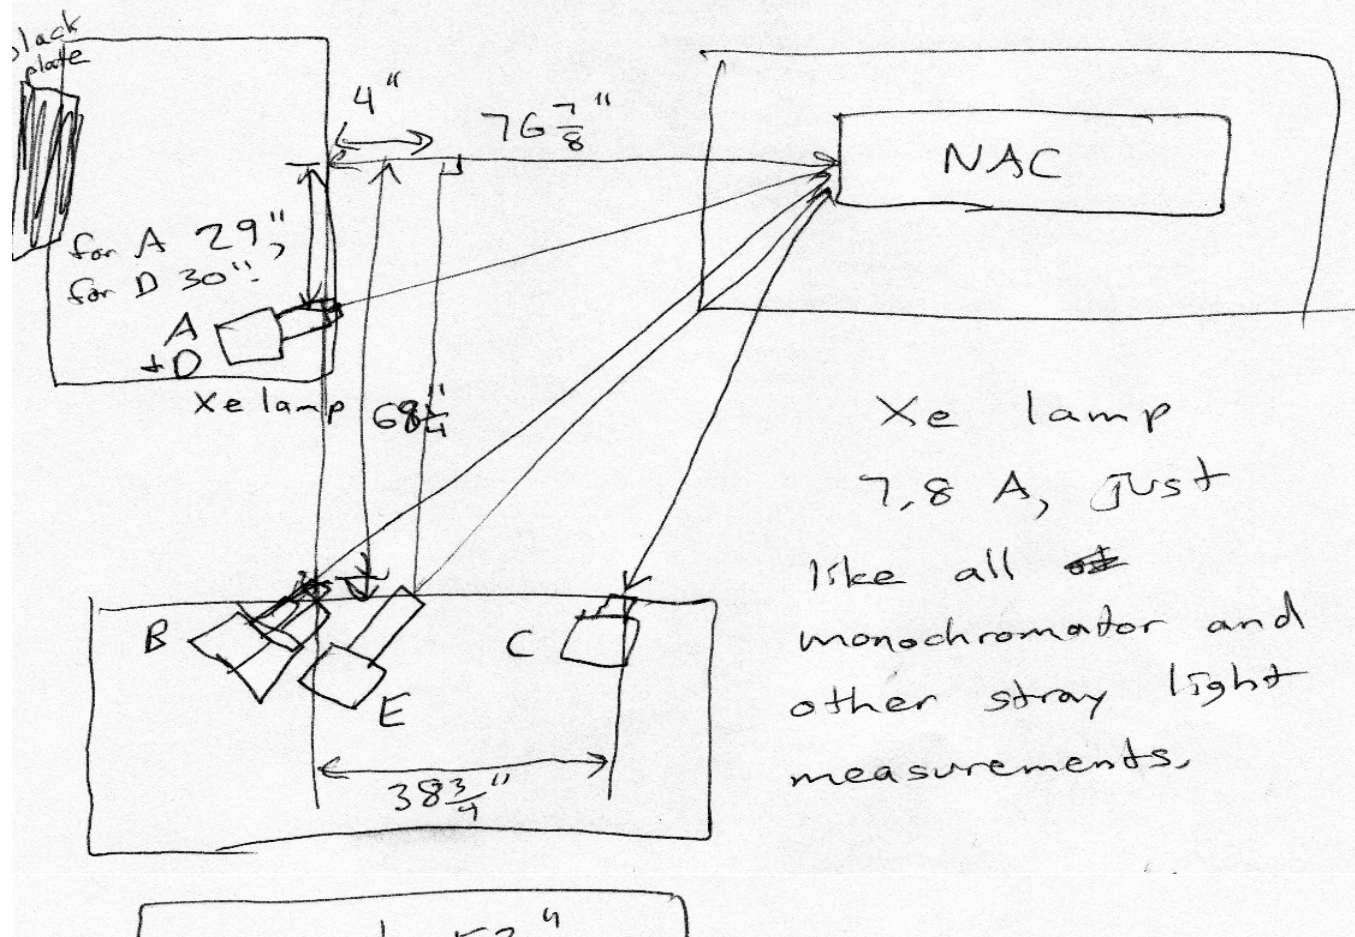 black
plate
4"
76 7/8"
NAC
for A 29",
for D 30".
A
+D
Xe lamp
68 1/4"
B
E
C
38 3/4"
Xe lamp
7,8 A, just
like all
monochromator and
other stray light
measurements.